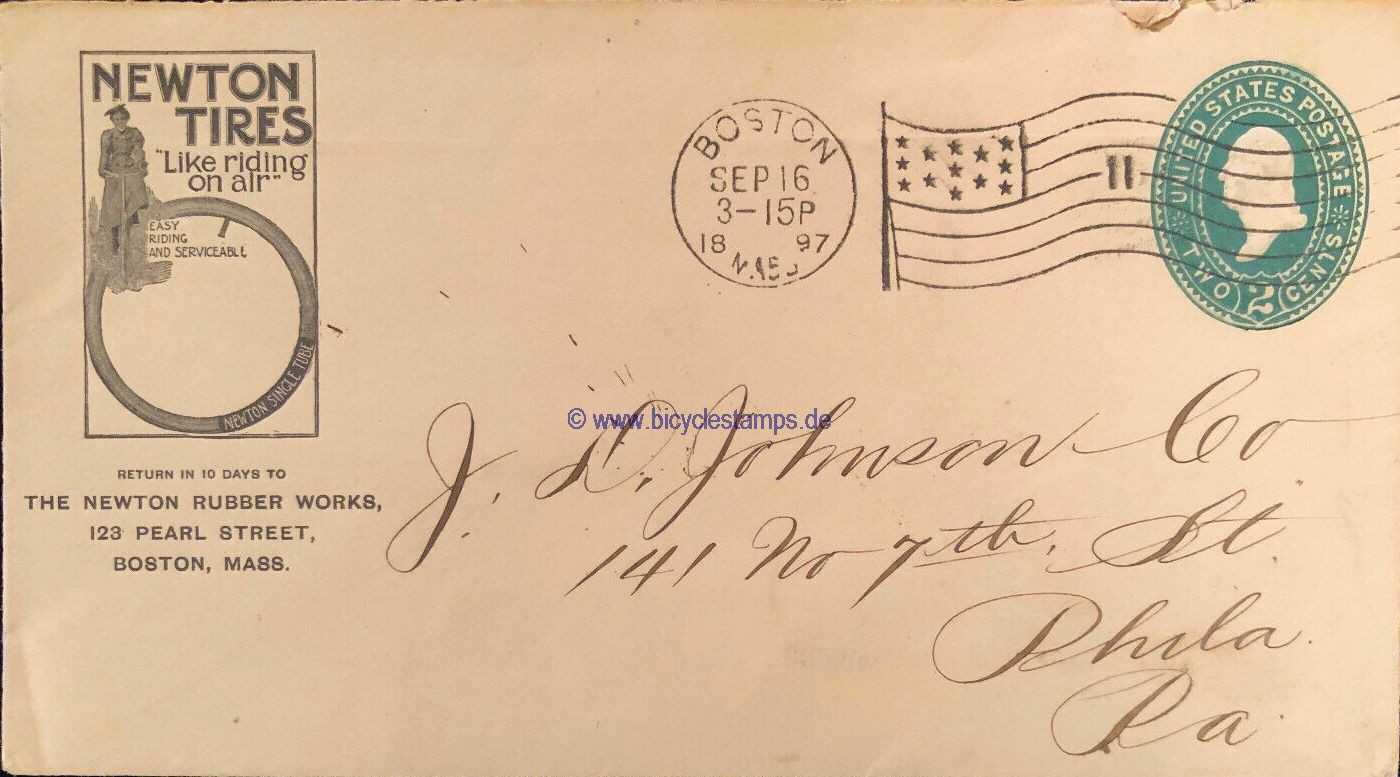 NEWTON
TIRES
"Like riding
on air"
EASY
RIDING
AND SERVICEABLE
NEWTON SINGLE TUBE
RETURN IN 10 DAYS TO
THE NEWTON RUBBER WORKS,
123 PEARL STREET,
BOSTON, MASS.
BOSTON
SEP 16
3-15P
18 97
MASS
11
UNITED STATES POSTAGE
TWO 2 CENTS
© www.bicyclestamps.de
J. D. Johnson Co
141 No 7th. St.
Phila.
Pa.